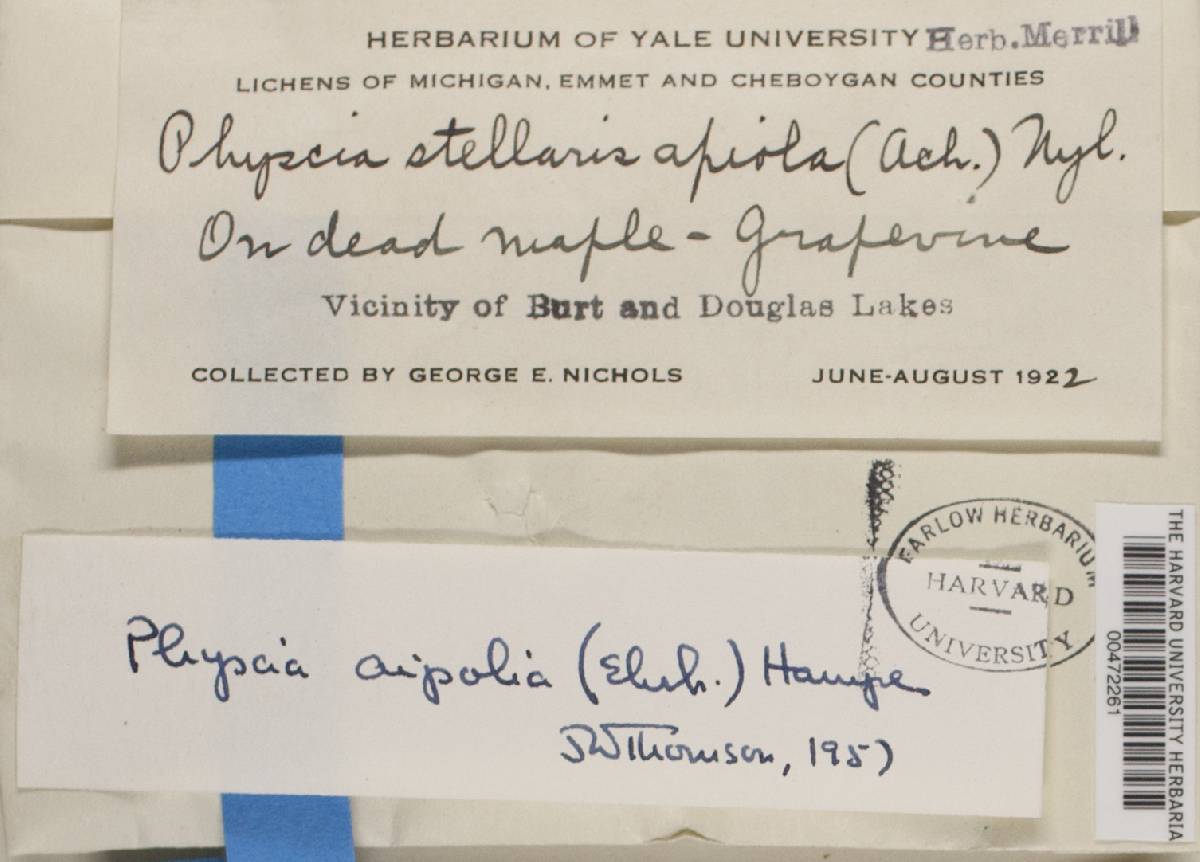 HERBARIUM OF YALE UNIVERSITY Herb. Merrill
LICHENS OF MICHIGAN, EMMET AND CHEBOYGAN COUNTIES
Physcia stellaris apiola (Ach.) Nyl.
On dead maple - Grapevine
Vicinity of Burt and Douglas Lakes
COLLECTED BY GEORGE E. NICHOLS JUNE-AUGUST 1922
FARLOW HERBARIUM
HARVARD
UNIVERSITY
THE HARVARD UNIVERSITY HERBARIA
00472261
Physcia aipolia (Ehrh.) Hampe
JWThomson, 1957